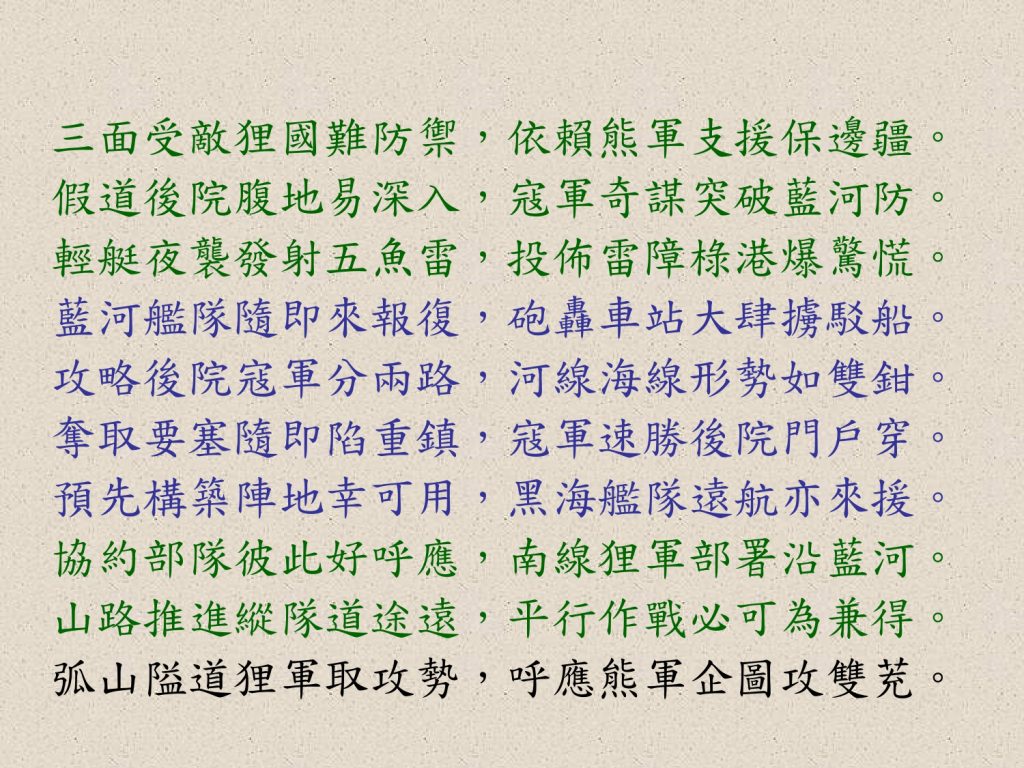 三面受敵狸國難防禦，依賴熊軍支援保邊疆。
假道後院腹地易深入，寇軍奇謀突破藍河防。
輕艇夜襲發射五魚雷，投佈雷障椂港爆驚慌。
藍河艦隊隨即來報復，砲轟車站大肆擄駁船。
攻略後院寇軍分兩路，河線海線形勢如雙鉗。
奪取要塞隨即陷重鎮，寇軍速勝後院門戶穿。
預先構築陣地幸可用，黑海艦隊遠航亦來援。
協約部隊彼此好呼應，南線狸軍部署沿藍河。
山路推進縱隊道途遠，平行作戰必可為兼得。
弧山隘道狸軍取攻勢，呼應熊軍企圖攻雙茺。